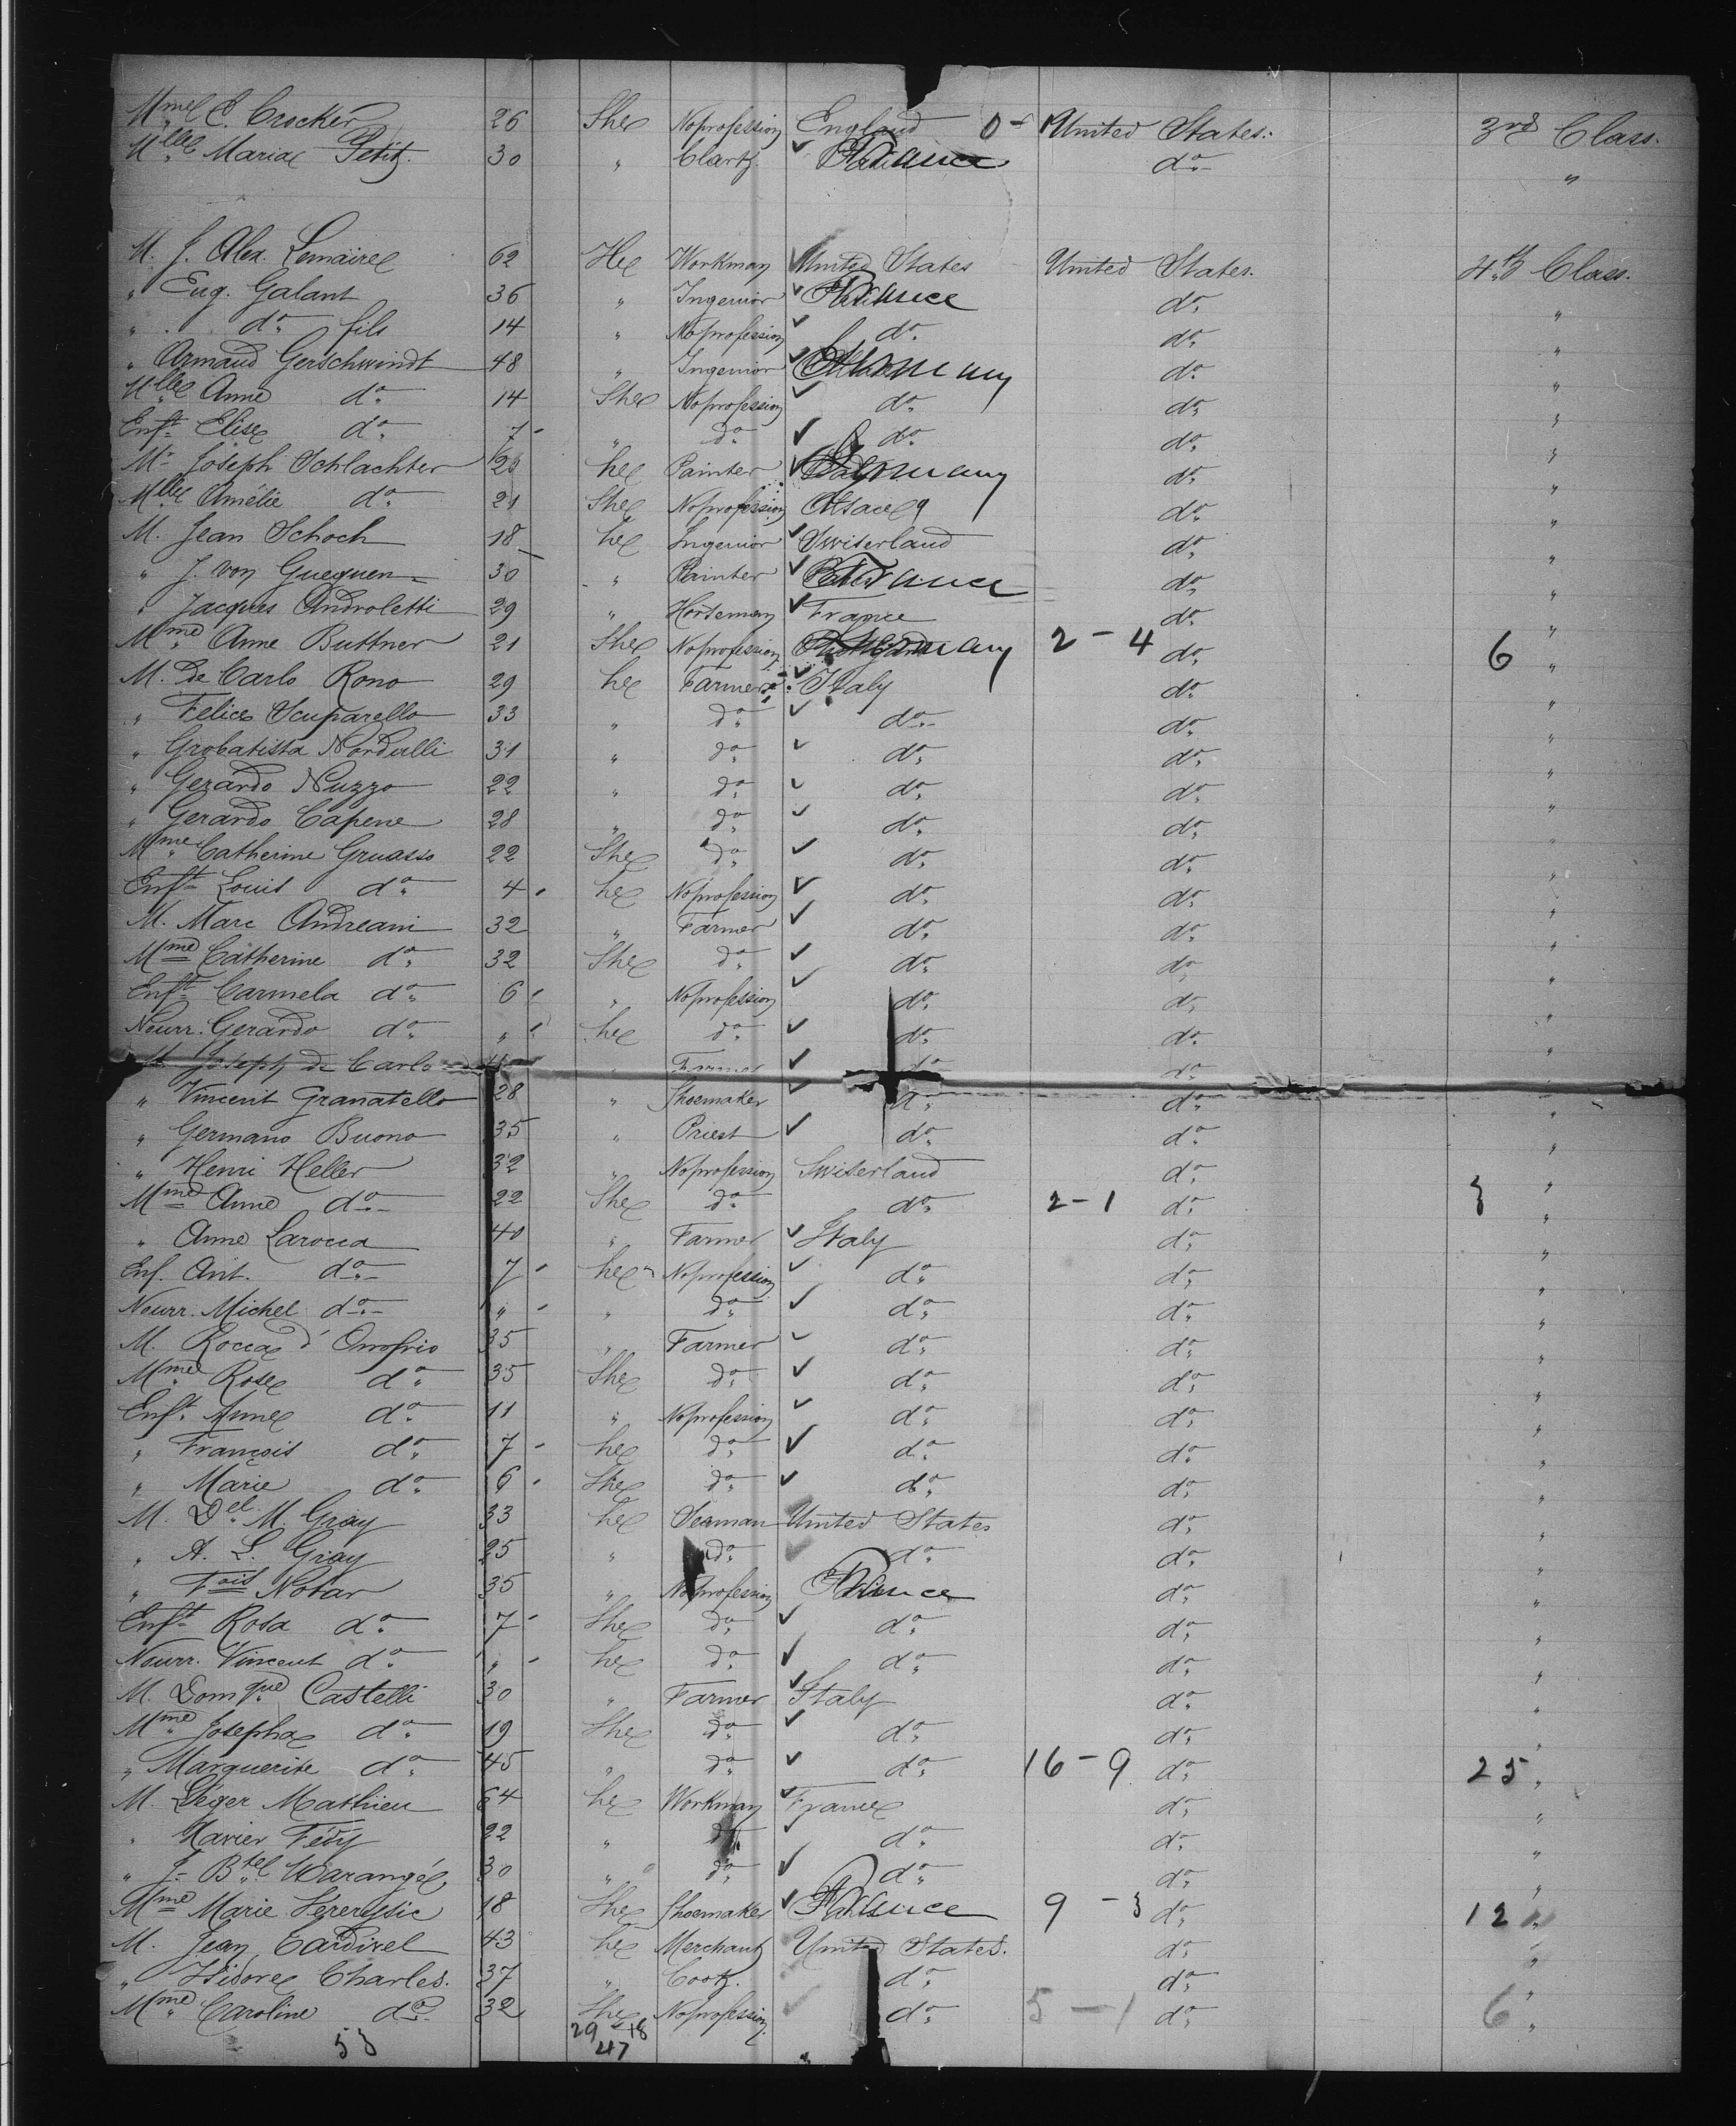 Mme C. Crocker 26 She No profession England 0 - 1 United States. 3rd Class.
Mlle Maria Petit. 30 " Clark. ✓ France do "
M. J. Alex. Lemaire 62 He Workman ✓ United States United States. 4th Class.
" Eug. Galant 36 " Ingenior ✓ France do "
" do fils 14 " No profession ✓ do do "
" Armand Gerschwindt 48 " Ingenior ✓ Germany do "
Mlle Anne do 14 She No profession ✓ do do "
Enft Elise do 7 " do ✓ do do "
Mr Joseph Schlachter 26 he Painter ✓ Germany do "
Mlle Amélie do 21 She No profession Alsace do "
M. Jean Schoch 18 he Ingenior ✓ Switerland do "
" J. von Gueguen 30 " Painter ✓ France do "
" Jacques Androletti 29 " Horseman ✓ France do "
Mme Anne Buttner 21 She No profession Germany 2 - 4 do 6 "
M. De Carlo Rono 29 he Farmer ✓ Italy do "
" Felice Scuparello 33 " do ✓ do do "
" Grobatista Nordulli 31 " do ✓ do do "
" Gerardo Nuzzo 22 " do ✓ do do "
" Gerardo Capene 28 " do ✓ do do "
Mme Catherine Gruasso 22 She do ✓ do do "
Enft Louis do 4 he No profession ✓ do do "
M. Marc Andreani 32 " Farmer ✓ do do "
Mme Catherine do 32 She do ✓ do do "
Enft Carmela do 6 " No profession ✓ do do "
Nourr. Gerardo do " he do ✓ do do "
M. Joseph de Carlo " Farmer ✓ do do "
" Vincent Granatello 28 " Shoemaker ✓ do do "
" Germano Buono 35 " Priest ✓ do do "
" Henri Heller 32 " No profession Switerland do "
Mme Anne do 22 She do do 2 - 1 do 3 "
" Anne Larocca 40 " Farmer ✓ Italy do "
Enf. Ant. do 7 he No profession ✓ do do "
Nourr. Michel do " " do ✓ do do "
M. Rocca d'Onofrio 35 " Farmer ✓ do do "
Mme Rose do 35 She do ✓ do do "
Enft Anne do 11 " No profession ✓ do do "
" François do 7 he do ✓ do do "
" Marie do 6 She do ✓ do do "
M. Del. M. Gray 33 he Seaman United States do "
" A. L. Gray 25 " do ✓ do do "
" Fois Notar 35 " No profession France do "
Enft Rosa do 7 She do ✓ do do "
Nourr. Vincent do " he do ✓ do do "
M. Domque Castelli 30 " Farmer ✓ Italy do "
Mme Josepha do 19 She do ✓ do do "
" Marguerite do 45 " do ✓ do 16 - 9 do 25 "
M. Léger Mathieu 64 he Workman ✓ France do "
" Xavier Fédy 22 " do ✓ do do "
" J. Bte Warangé 30 " do ✓ do do "
Mme Marie 18 She Shoemaker ✓ France 9 - 3 do 12 "
M. Jean Cardivel 43 he Merchant United States. do "
" Isidore Charles. 37 " Cook. do do "
Mme Caroline do 32 She No profession. ✓ do 5 - 1 do 6 "
53 29 18
47